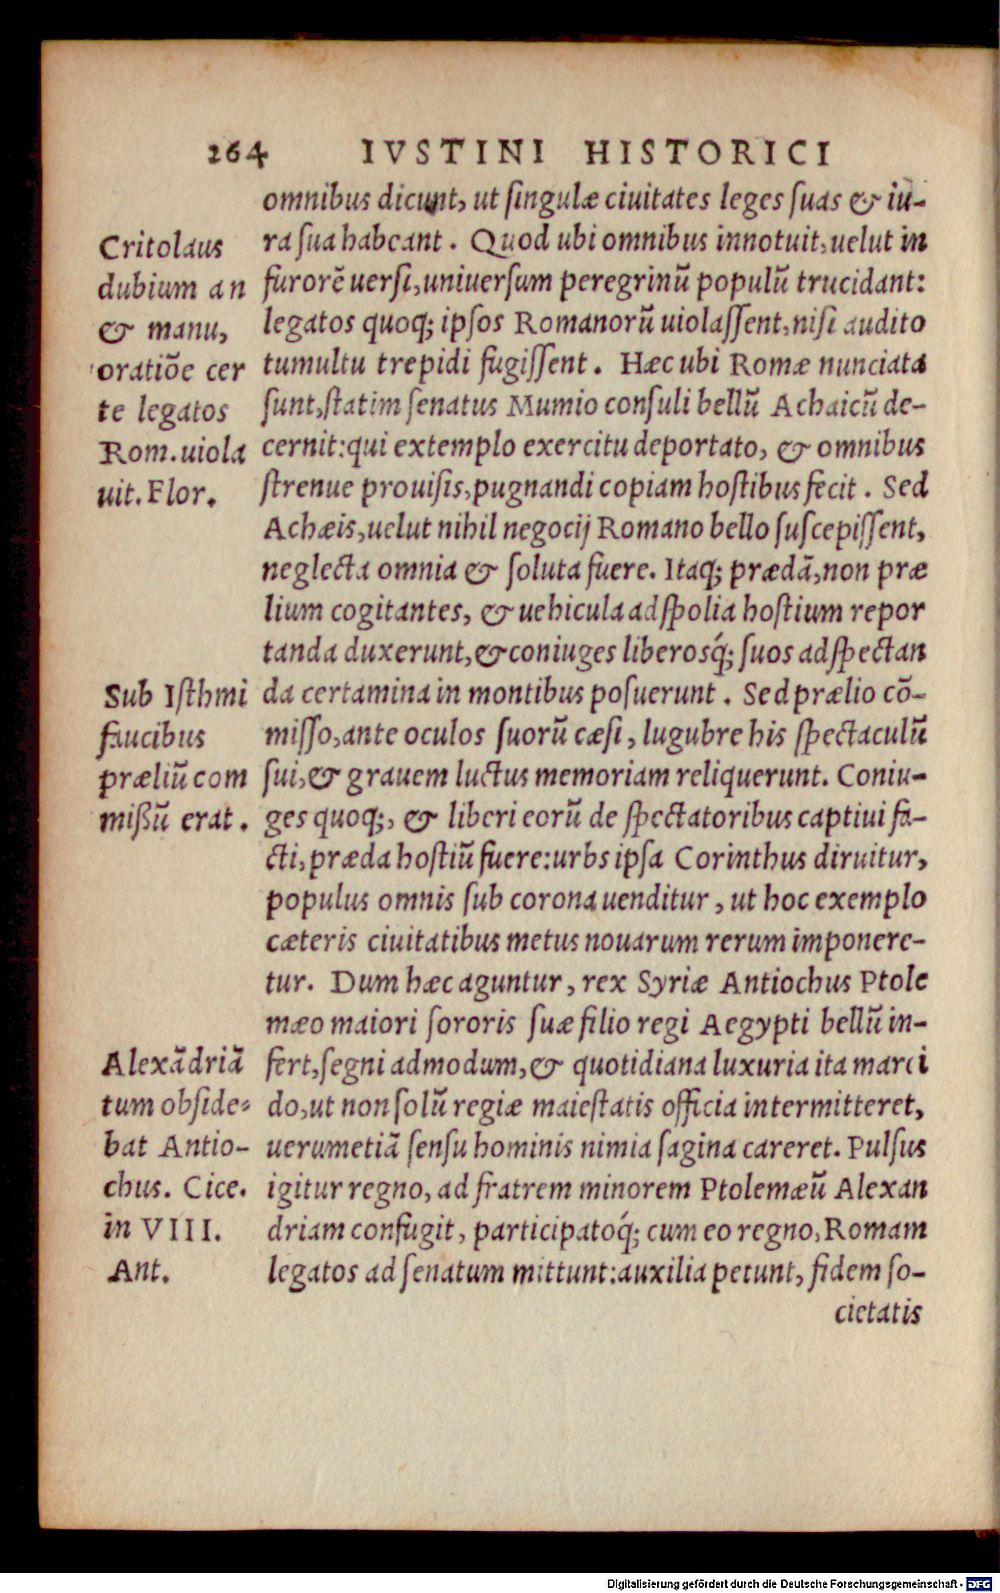 264 IVSTINI HISTORICI
omnibus dicunt, ut ſingulæ ciuitates leges ſuas & iu-
ra ſua habeant. Quod ubi omnibus innotuit, uelut in
furorẽ uerſi, uniuerſum peregrinũ populũ trucidant:
legatos quoq; ipſos Romanorũ uiolaſſent, niſi audito
tumultu trepidi fugiſſent. Hæc ubi Romæ nunciata
ſunt, ſtatim ſenatus Mumio conſuli bellũ Achaicũ de-
cernit: qui extemplo exercitu deportato, & omnibus
ſtrenue prouiſis, pugnandi copiam hoſtibus fecit. Sed
Achæis, uelut nihil negocij Romano bello ſuſcepiſſent,
neglecta omnia & ſoluta fuere. Itaq; prædã, non præ
lium cogitantes, & uehicula ad ſpolia hoſtium repor
tanda duxerunt, & coniuges liberosq́; ſuos ad ſpectan
da certamina in montibus poſuerunt. Sed prælio cõ-
miſſo, ante oculos ſuorũ cæſi, lugubre his ſpectaculũ
ſui, & grauem luctus memoriam reliquerunt. Coniu-
ges quoq;, & liberi eorũ de ſpectatoribus captiui fa-
cti, præda hoſtiũ fuere: urbs ipſa Corinthus diruitur,
populus omnis ſub corona uenditur, ut hoc exemplo
cæteris ciuitatibus metus nouarum rerum imponere-
tur. Dum hæc aguntur, rex Syriæ Antiochus Ptole
mæo maiori ſororis ſuæ filio regi Aegypti bellũ in-
fert, ſegni admodum, & quotidiana luxuria ita marci
do, ut non ſolũ regiæ maieſtatis officia intermitteret,
uerumetiã ſenſu hominis nimia ſagina careret. Pulſus
igitur regno, ad fratrem minorem Ptolemæũ Alexan
driam confugit, participatoq́; cum eo regno, Romam
legatos ad ſenatum mittunt: auxilia petunt, fidem ſo-
cietatis
Critolaus
dubium an
& manu,
oratiõe cer
te legatos
Rom. uiola
uit. Flor.
Sub Iſthmi
faucibus
præliũ com
mißũ erat.
Alexãdriã
tum obſide-
bat Antio-
chus. Cice.
in VIII.
Ant.
Digitalisierung gefördert durch die Deutsche Forschungsgemeinschaft - DFG